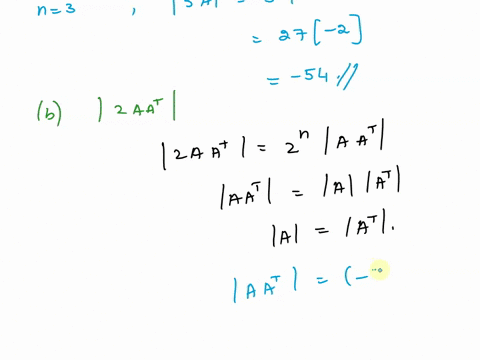 n=3 , |3A| =
= 27[-2]
= -54 //
(b) |2AAᵀ|
|2AAᵀ| = 2ⁿ |AAᵀ|
|AAᵀ| = |A| |Aᵀ|
|A| = |Aᵀ|.
|AAᵀ| = (-